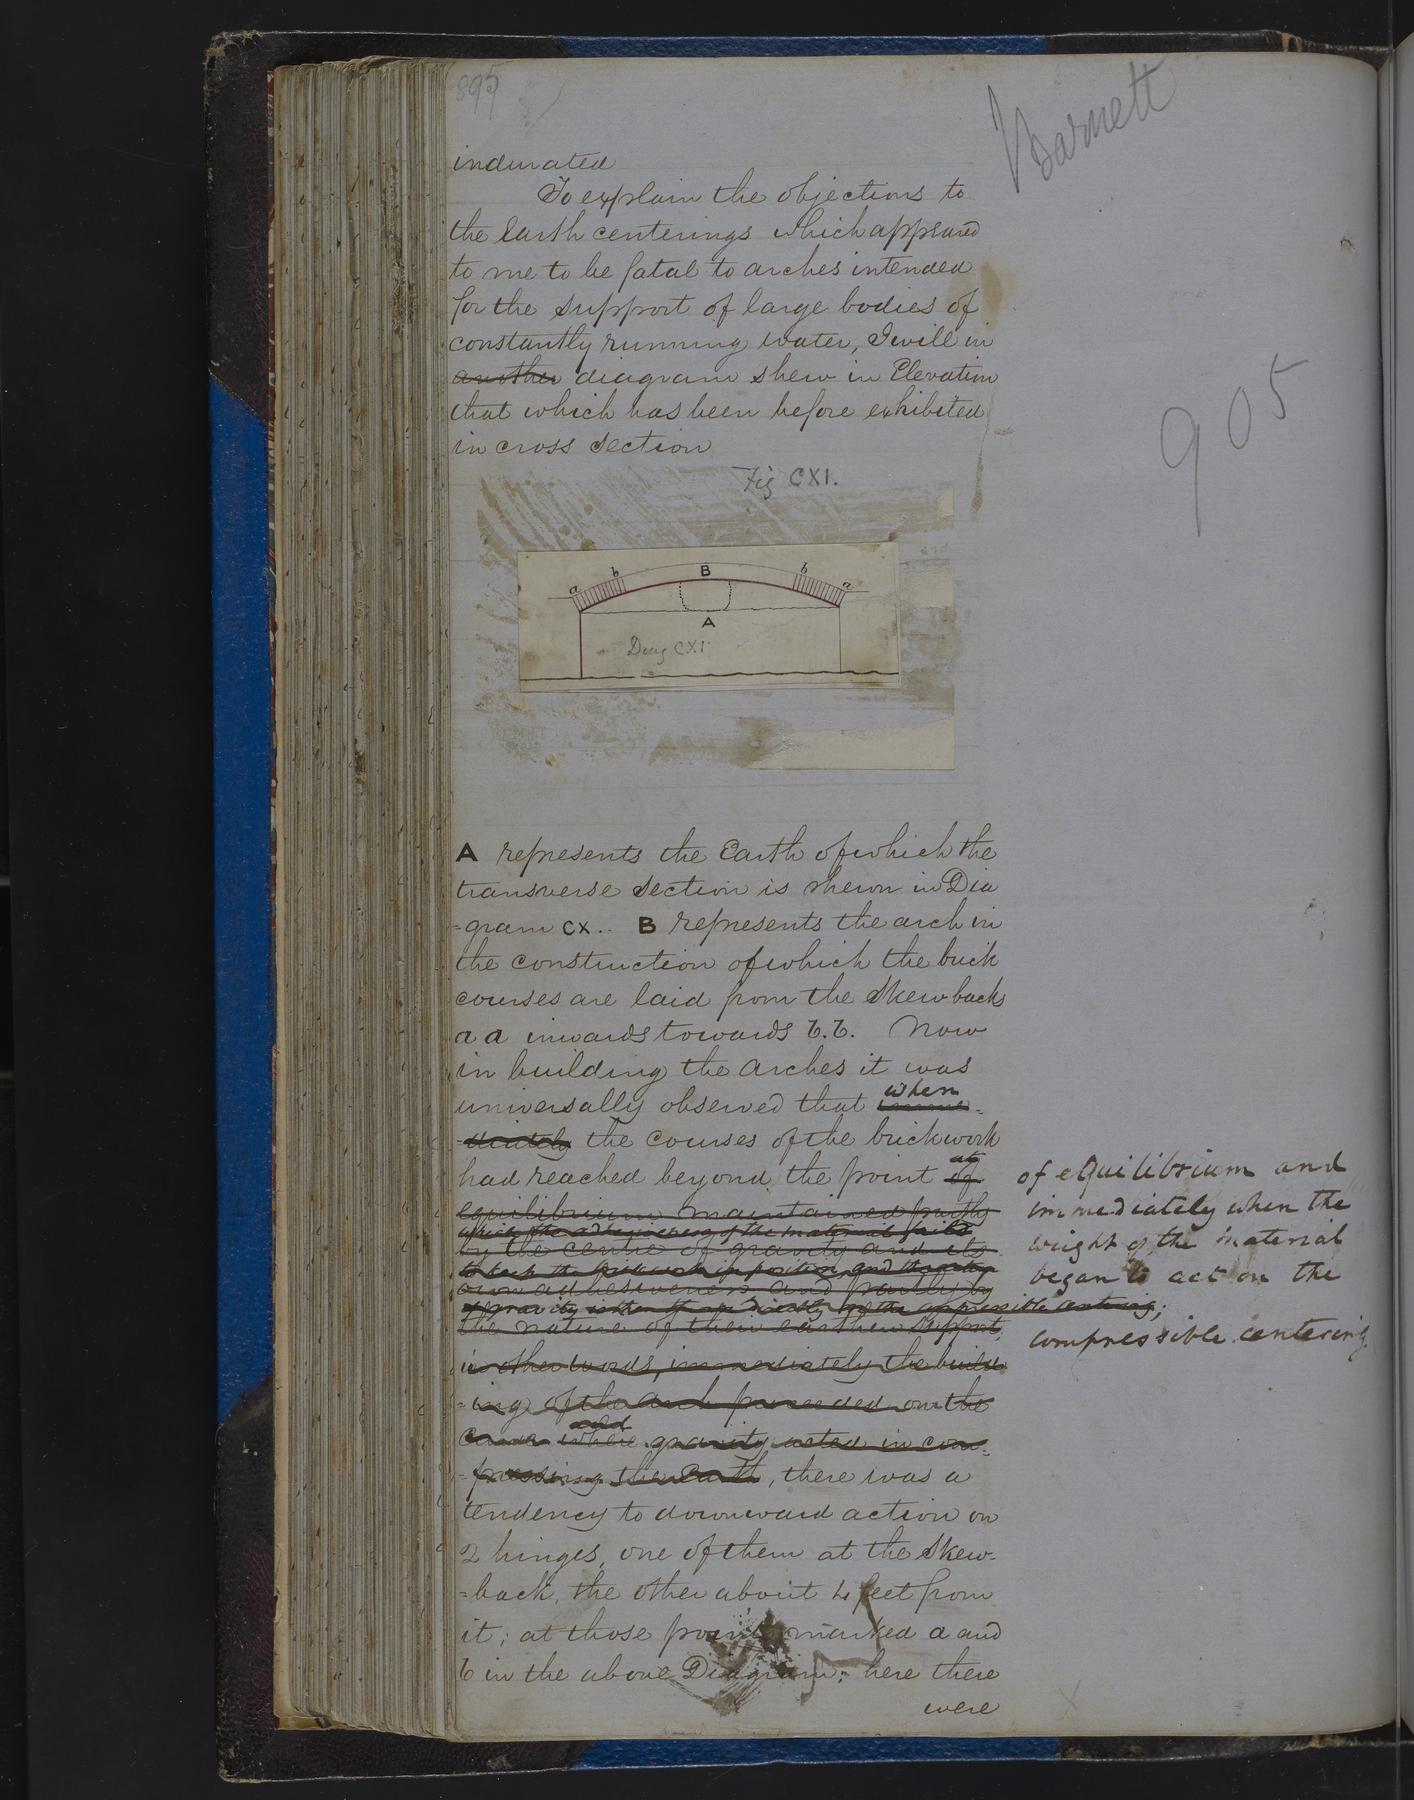 895
Barnett
indurated
To explain the objections to
the Earth centerings which appeared
to me to be fatal to arches intended
for the support of large bodies of
constantly running water, I will in
another diagram shew in Elevation
that which has been before exhibited
in cross section
905
Fig CXI.
a b B b a
A
Diag CXI
A represents the Earth of which the
transverse section is shewn in Dia
-gram CX.. B represents the arch in
the construction of which the brick
courses are laid from the Skewbacks
a a inwards towards b.b. Now
in building the arches it was
when
universally observed that imme-
-diately the courses of the brickwork
at
had reached beyond the point of
of equilibrium and
immediately when the
weight of the material
began to act on the
compressible centering
equilibrium maintained partly
which the adhesiveness of the material failed
by the centre of gravity and its
to keep the brickwork in position, and the centre
own adhesiveness and partly by
of gravity directly on the compressible centering;
the nature of their earthen support,
in other words, immediately the build
-ing of the arch proceeded on the
and
curve where gravity acted in com-
-pressing the Earth, there was a
tendency to downward action on
2 hinges, one of them at the Skew-
-back, the other about 4 feet from
it; at those points marked a and
b in the above Diagram: here there
were